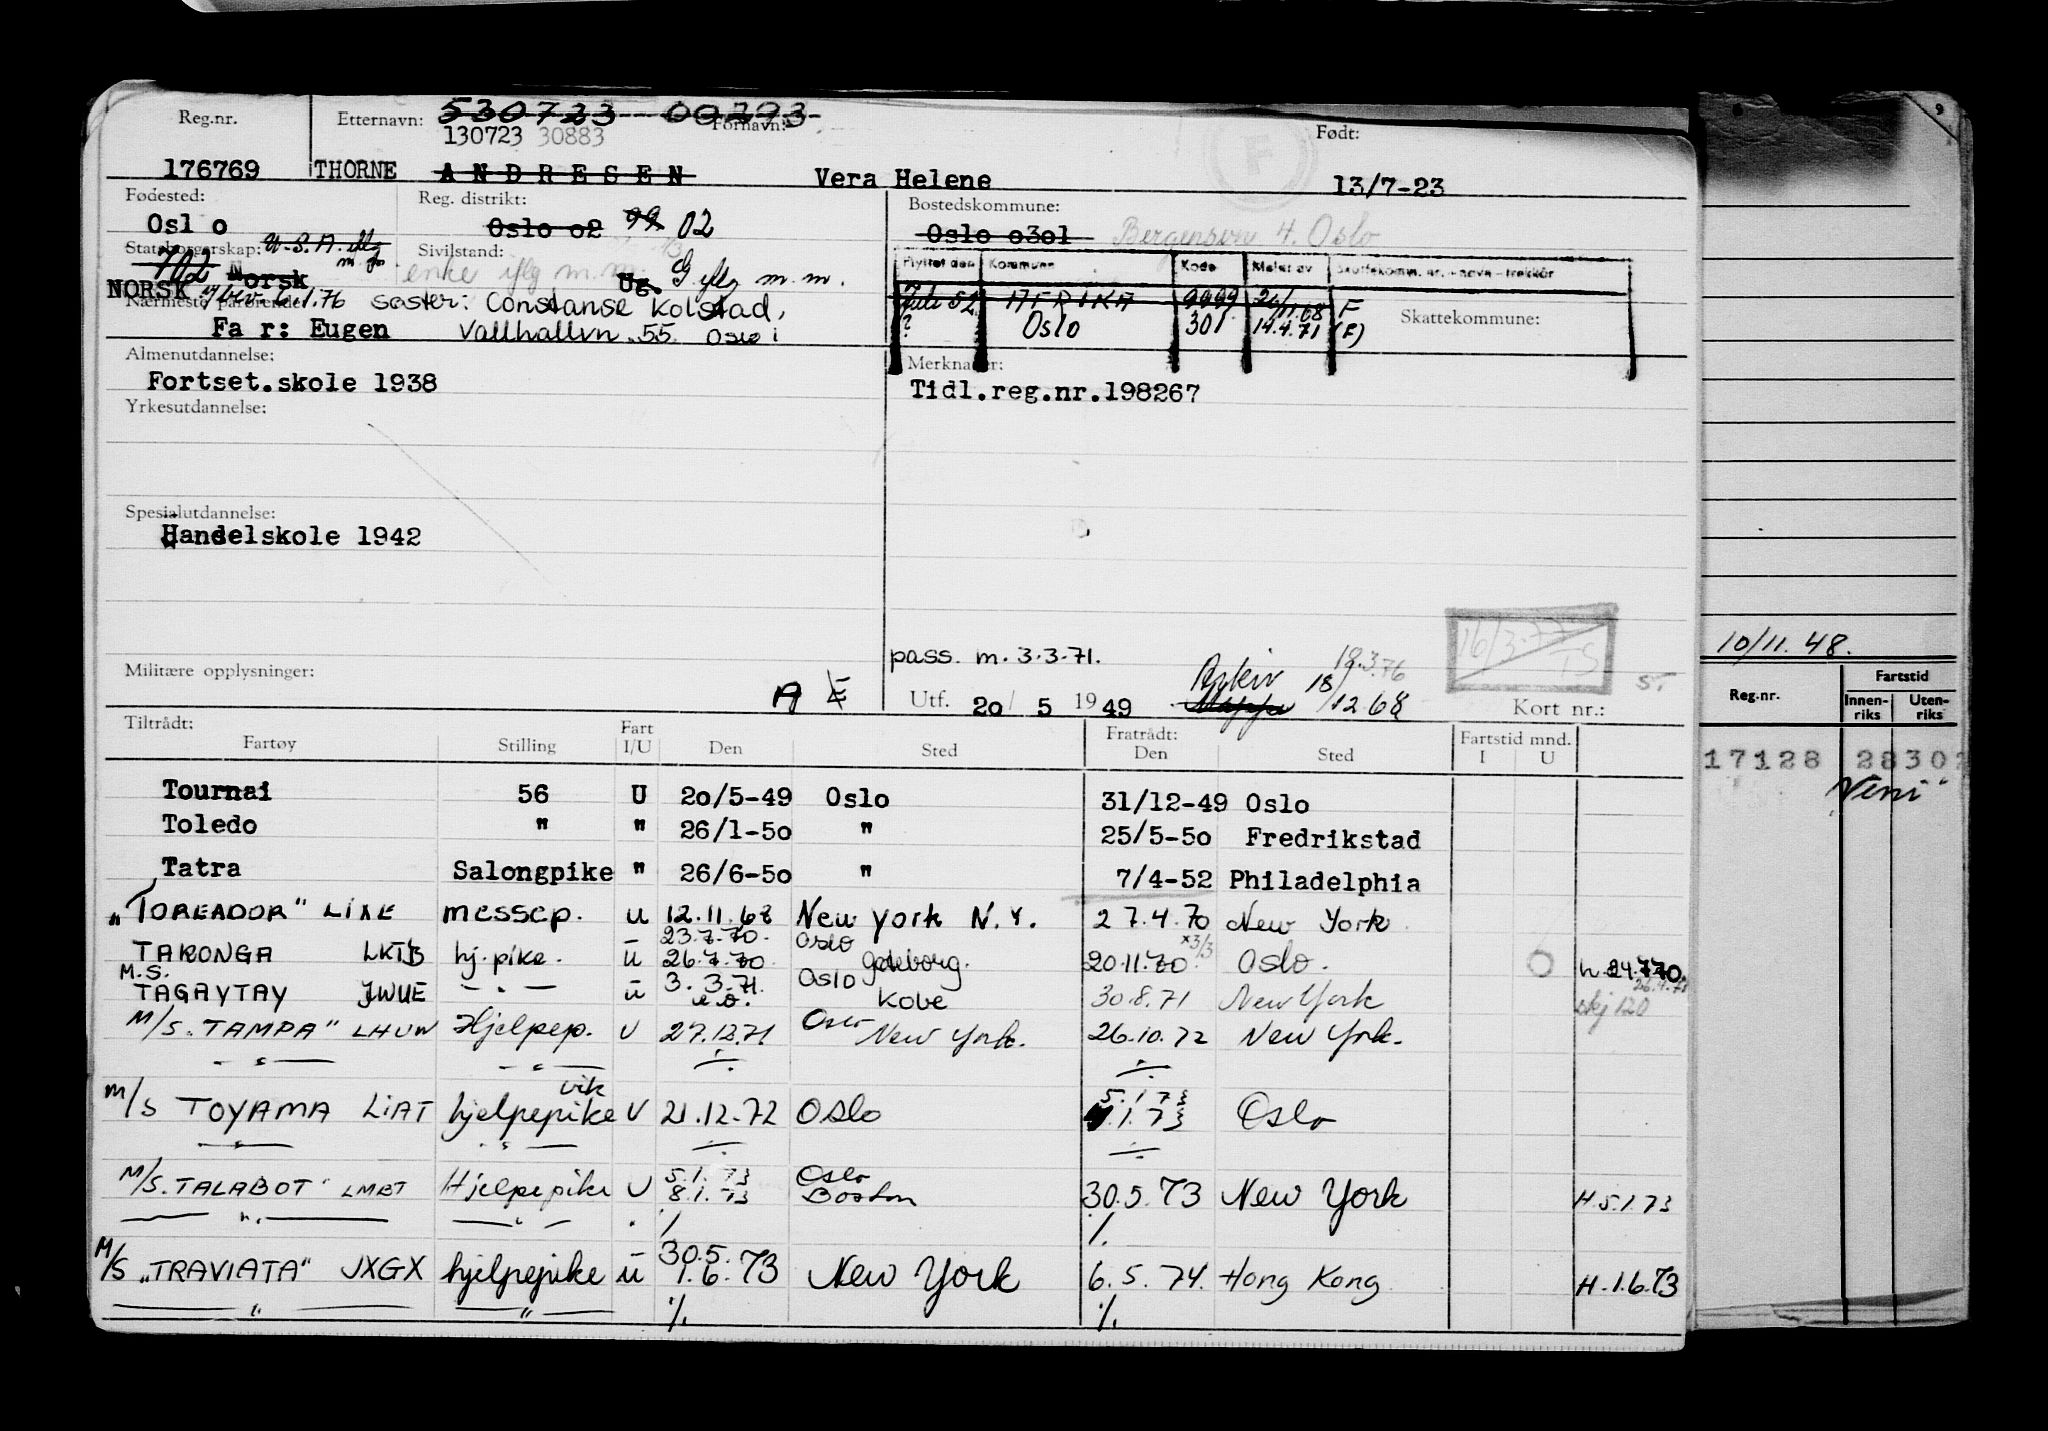 Reg.nr. Etternavn: 530723 00293 Fornavn: Født:
130723 30883
176769 THORNE ANDRESEN Vera Helene 13/7-23
Fødested: Reg. distrikt: Bostedskommune:
Oslo Oslo o2 99 02 Oslo o3o1 Bergensvn 4. Oslo
Statsborgerskap: U.S.A. iflg m.m. Sivilstand:
702 Norsk enke iflg m.m. Ug. G iflg m.m.
Flyttet den Kommune Kode Meldt av Skattekomm. nr. - navn - trekkår
NORSK 6.1.76
Nærmeste pårørende: søster: Constanse Kolstad,
Juli 52 AFRIKA 9999 26/11.68 F
Far: Eugen Vallhallvn. 55. Oslo
? Oslo 301 14.4.71 (F) Skattekommune:
Almenutdannelse: Merknader:
Fortset.skole 1938 Tidl.reg.nr.198267
Yrkesutdannelse:
Spesialutdannelse:
Handelskole 1942
pass. m. 3.3.71. 16/3-77 TS
Militære opplysninger: A E Arkiv 18.3.76
Utf. 20/ 5 1949 Mappe 18/12.68 Kort nr.:
Tiltrådt: Fratrådt: Fartstid mnd.
Fartøy Stilling Fart I/U Den Sted Den Sted I U
Tournai 56 U 20/5-49 Oslo 31/12-49 Oslo
Toledo " " 26/1-50 " 25/5-50 Fredrikstad
Tatra Salongpike " 26/6-50 " 7/4-52 Philadelphia
"TOREADOR" LIXE messep. u 12.11.68 New York N.Y. 27.4.70 New York
TARONGA LKTB hj.pike. u 23.7.70. 26.7.70. Oslo Gøteborg. 20.11.70. x3/3 Oslo. h 24.7.70.
M.S. TAGAYTAY JWUE - " - u 3.3.71. e.o. Oslo Kobe 30.8.71 New York skj 120
M/S. "TAMPA" LHUW Hjelpep. U 27.12.71 Oslo New York. 26.10.72 New York.
M/S TOYAMA LIAT hjelpepike vik U 21.12.72 Oslo 5.1.73 1.73 Oslo
M/S. TALABOT" LMBT Hjelpepike U 5.1.73 8.1.73 Oslo Boston 30.5.73 New York H.5.1.73
M/S "TRAVIATA" JXGX hjelpepike u 30.5. 1.6.73 New York 6.5.74. Hong Kong H.1.6.73
9
10/11.48.
Reg.nr. Fartstid
Innen-riks Uten-riks
17128 2830